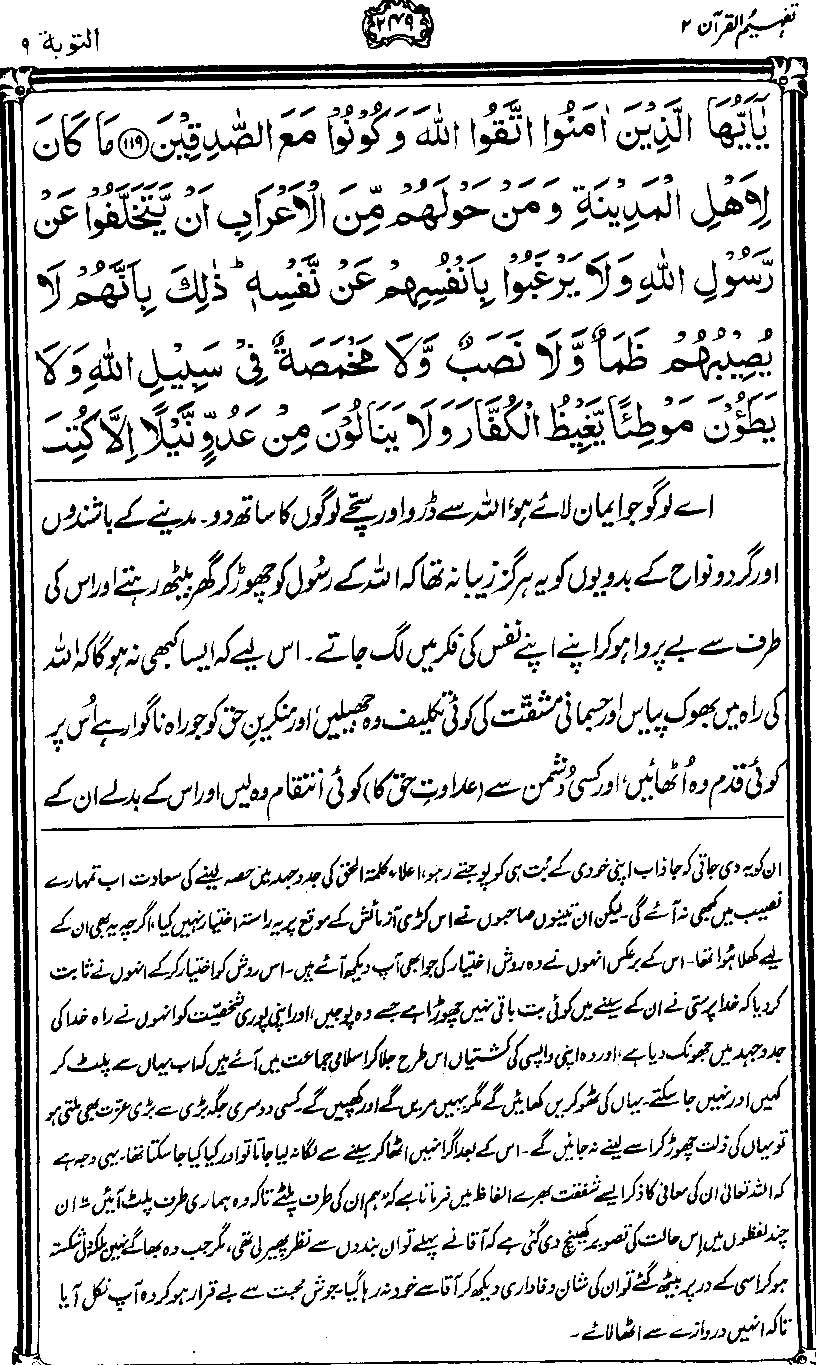 تفہیم القرآن ۲
۲۴۹
التوبة ۹
يٰۤاَيُّهَا الَّذِيْنَ اٰمَنُوا اتَّقُوا اللّٰهَ وَكُوْنُوْا مَعَ الصّٰدِقِيْنَ ﴿۱۱۹﴾ مَا كَانَ
لِاَهْلِ الْمَدِيْنَةِ وَمَنْ حَوْلَهُمْ مِّنَ الْاَعْرَابِ اَنْ يَّتَخَلَّفُوْا عَنْ
رَّسُوْلِ اللّٰهِ وَلَا يَرْغَبُوْا بِاَنْفُسِهِمْ عَنْ نَّفْسِهٖ ؕ ذٰلِكَ بِاَنَّهُمْ لَا
يُصِيْبُهُمْ ظَمَاٌ وَّلَا نَصَبٌ وَّلَا مَخْمَصَةٌ فِيْ سَبِيْلِ اللّٰهِ وَلَا
يَطَئُوْنَ مَوْطِئًا يَّغِيْظُ الْكُفَّارَ وَلَا يَنَالُوْنَ مِنْ عَدُوٍّ نَّيْلًا اِلَّا كُتِبَ
اے لوگو جو ایمان لائے ہو، اللہ سے ڈرو اور سچے لوگوں کا ساتھ دو۔ مدینے کے باشندوں
اور گردونواح کے بدویوں کو یہ ہرگز زیبا نہ تھا کہ اللہ کے رسُول کو چھوڑ کر گھر بیٹھ رہتے اور اس کی
طرف سے بے پروا ہو کر اپنے اپنے نفس کی فکر میں لگ جاتے۔ اس لیے کہ ایسا کبھی نہ ہوگا کہ اللہ
کی راہ میں بھوک پیاس اور جسمانی مشقّت کی کوئی تکلیف وہ جھیلیں، اور منکرینِ حق کو جو راہ ناگوار ہے اُس پر
کوئی قدم وہ اُٹھائیں، اور کسی دُشمن سے (عداوتِ حق کا) کوئی انتقام وہ لیں اور اس کے بدلے ان کے
ان کو یہ دی جاتی کہ جاؤ اب اپنی خودی کے بُت ہی کو پوجتے رہو، اعلاء کلمۃ الحق کی جدوجہد میں حصہ لینے کی سعادت اب تمہارے
نصیب میں کبھی نہ آئے گی۔ لیکن ان تینوں صاحبوں نے اس کڑی آزمائش کے موقع پر یہ راستہ اختیار نہیں کیا، اگرچہ یہ بھی ان کے
لیے کھلا ہُوا تھا۔ اس کے برعکس انہوں نے وہ روش اختیار کی جو ابھی آپ دیکھ آئے ہیں۔ اس روش کو اختیار کرکے انہوں نے ثابت
کر دیا کہ خدا پرستی نے ان کے سینے میں کوئی بت باقی نہیں چھوڑا ہے جسے وہ پوجیں، اور اپنی پوری شخصیت کو انہوں نے راہ خدا کی
جدوجہد میں جھونک دیا ہے، اور وہ اپنی واپسی کی کشتیاں اس طرح جلا کر اسلامی جماعت میں آئے ہیں کہ اب یہاں سے پلٹ کر
کہیں اور نہیں جا سکتے۔ یہاں کی ٹھوکریں کھائیں گے مگر یہیں مریں گے اور کھپیں گے۔ کسی دوسری جگہ بڑی سے بڑی عزت بھی ملتی ہو
تو یہاں کی ذلت چھوڑ کر اسے لینے نہ جائیں گے۔ اس کے بعد اگر انہیں اٹھا کر سینے سے لگا نہ لیا جاتا تو اور کیا کیا جا سکتا تھا۔ یہی وجہ ہے
کہ اللہ تعالیٰ ان کی معافی کا ذکر ایسے شفقت بھرے الفاظ میں فرماتا ہے کہ ”ہم ان کی طرف پلٹے تاکہ وہ ہماری طرف پلٹ آئیں“۔ ان
چند لفظوں میں اِس حالت کی تصویر کھینچ دی گئی ہے کہ آقا نے پہلے تو ان بندوں سے نظر پھیر لی تھی، مگر جب وہ بھاگے نہیں بلکہ دل شکستہ
ہو کر اسی کے در پر بیٹھ گئے تو ان کی شان وفاداری دیکھ کر آقا سے خود نہ رہا گیا۔ جوش محبت سے بے قرار ہو کر وہ آپ نکل آیا
تاکہ انہیں دروازے سے اٹھا لائے۔